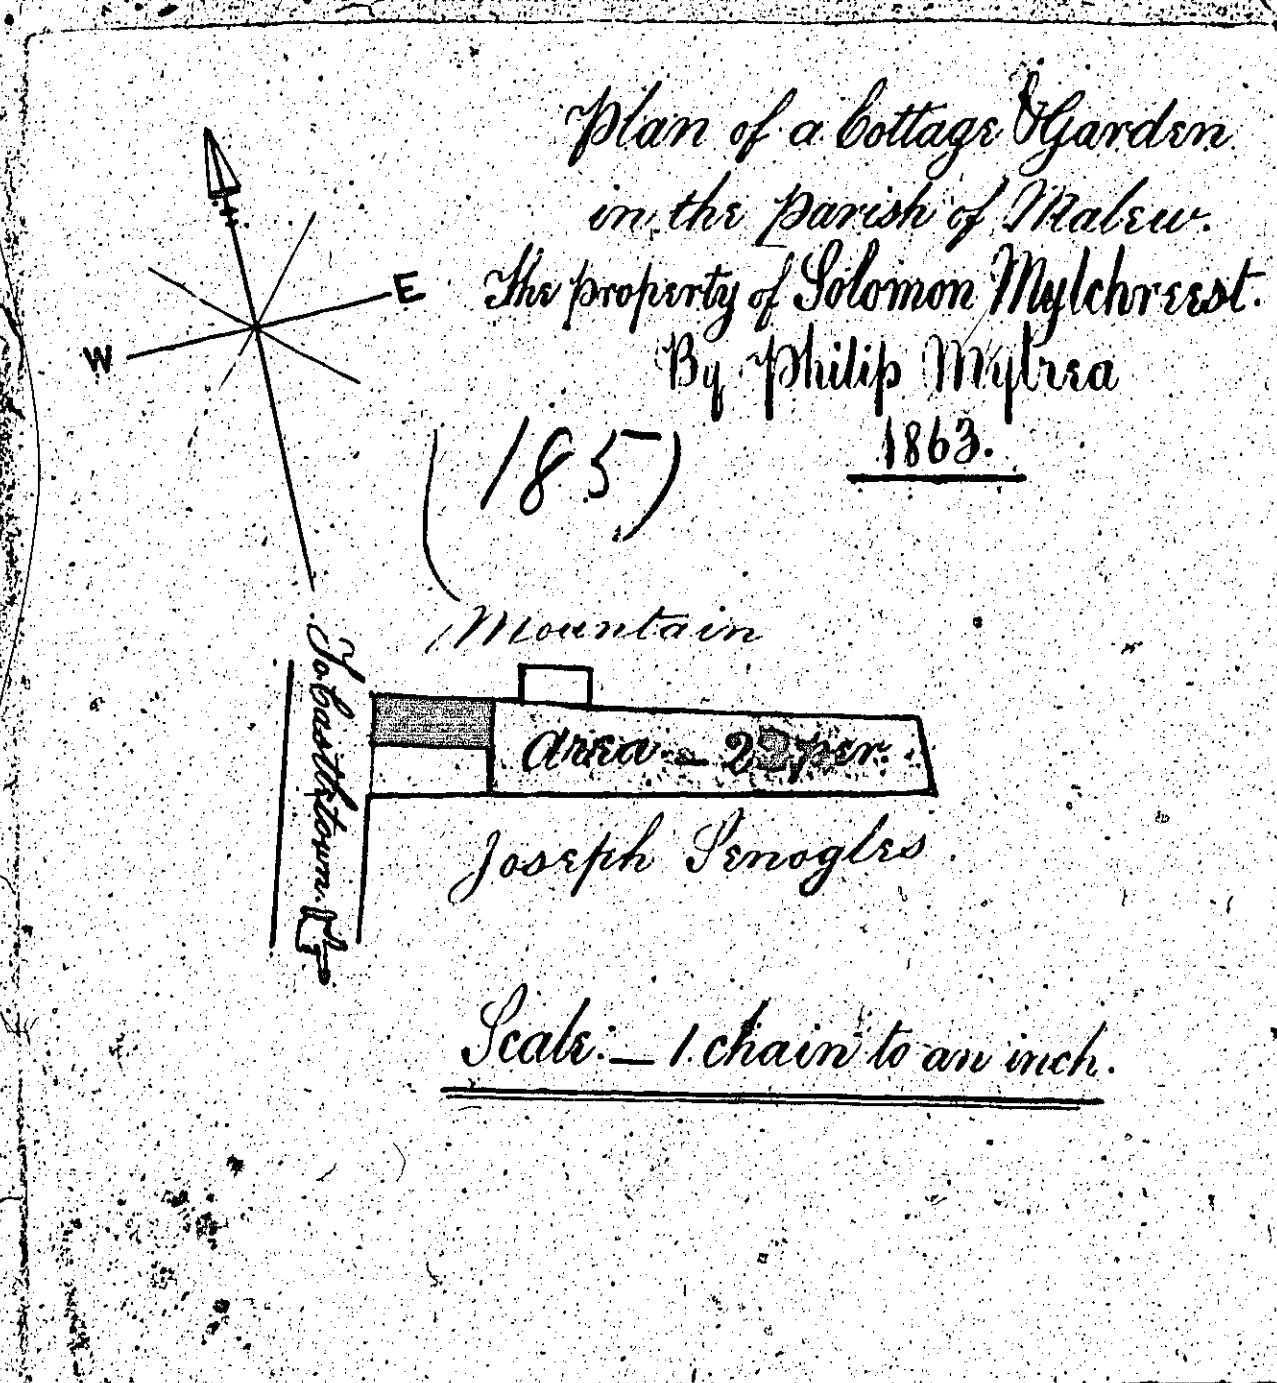 Plan of a Cottage & Garden
in the parish of Malew.
The property of Solomon Mylchreest.
By Philip Mylrea
1863.
(185)
E
W
Mountain
To Castletown.
Area – 23 per.
Joseph Senogles.
Scale:– 1. chain to an inch.